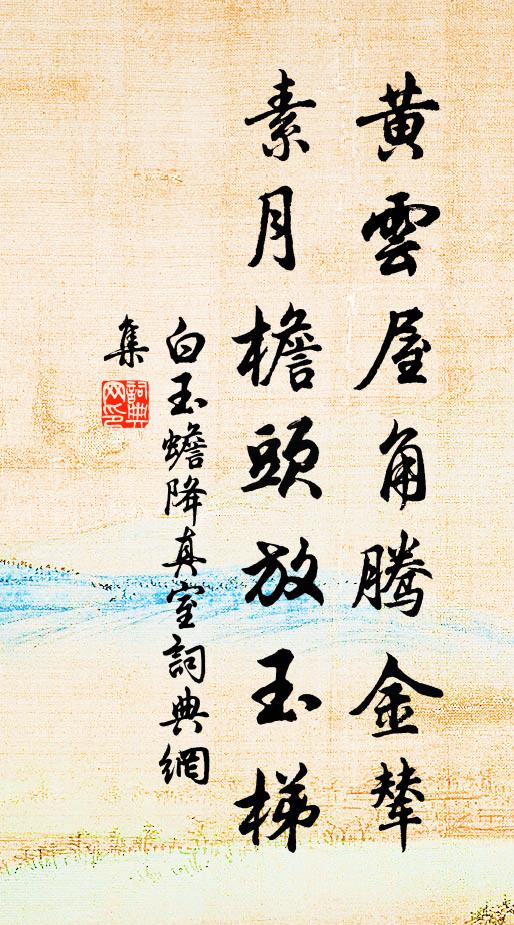 黄雲屋角腾金輦
素月檐頭放玉梯
白玉蟾降真室詞典網
集
詞典
网